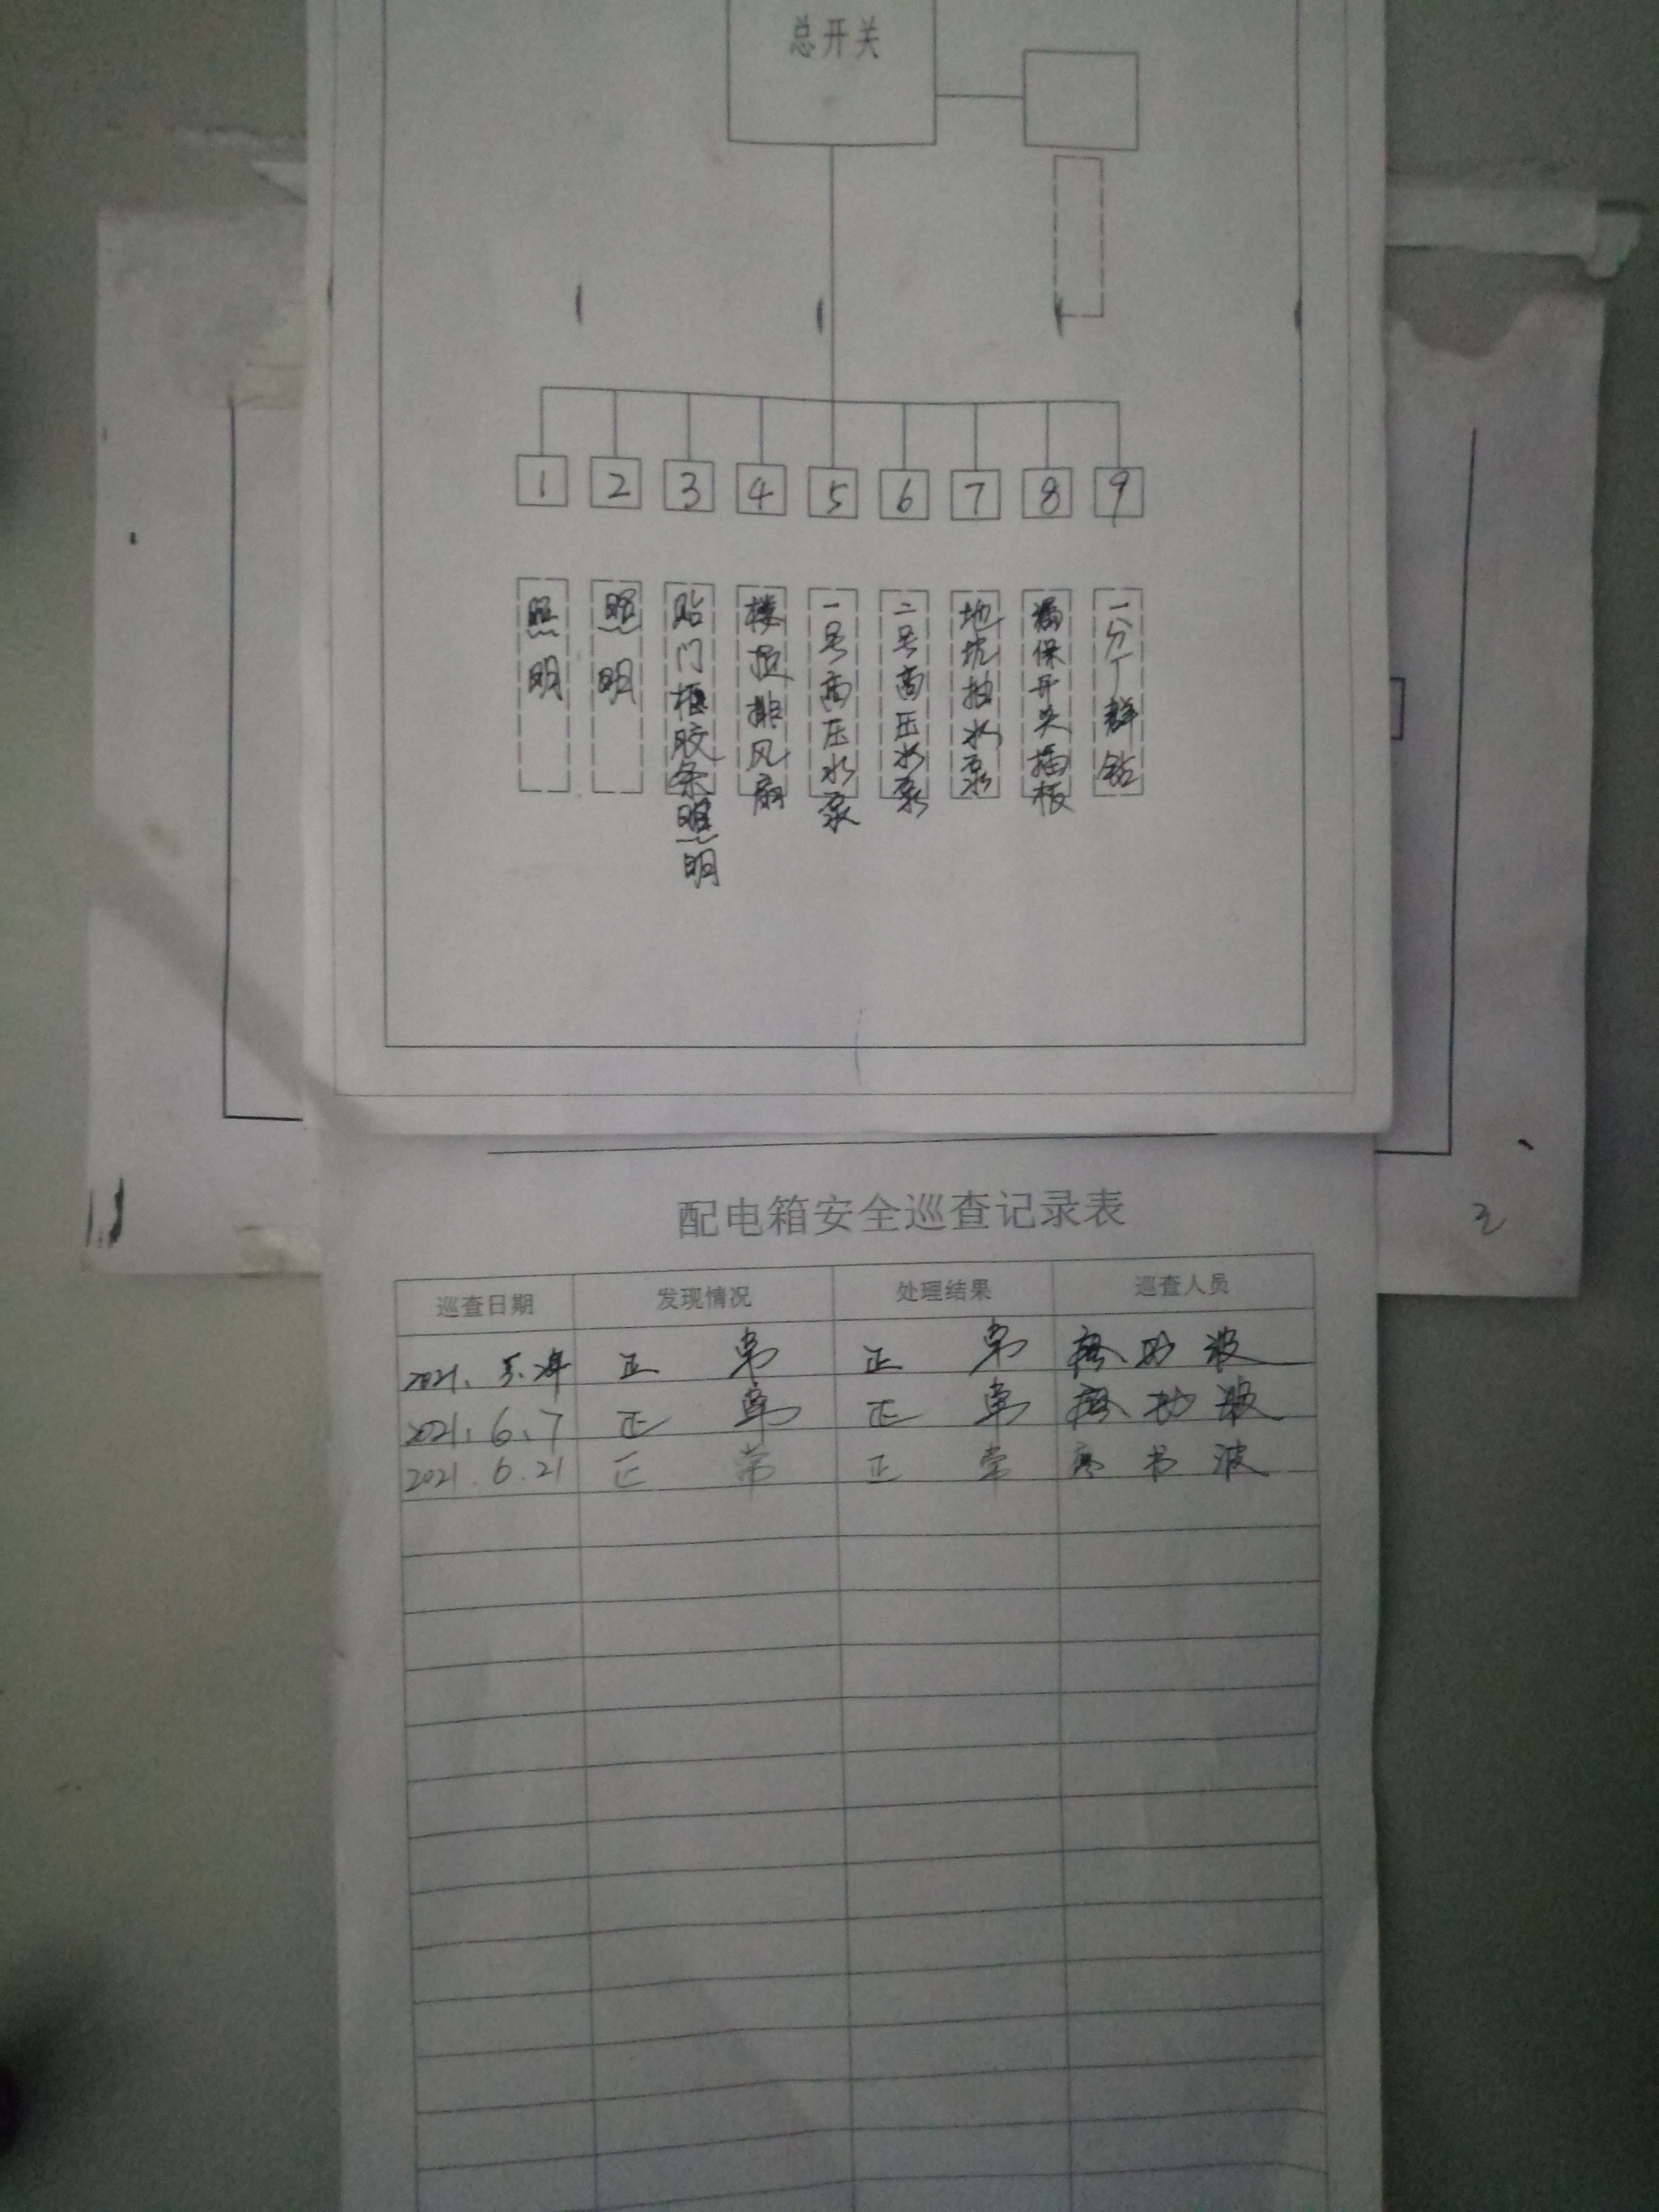 总开关
1 2 3 4 5 6 7 8 9
照明
照明
贴门框胶条照明
楼顶排风扇
一号高压水泵
二号高压水泵
地坑抽水泵
漏保开关插板
一分厂群钻
2
配电箱安全巡查记录表
巡查日期 发现情况 处理结果 巡查人员
2021. 5. 正常 正常 波
2021. 6. 7 正常 正常 波
2021. 6. 21 正常 正常 波